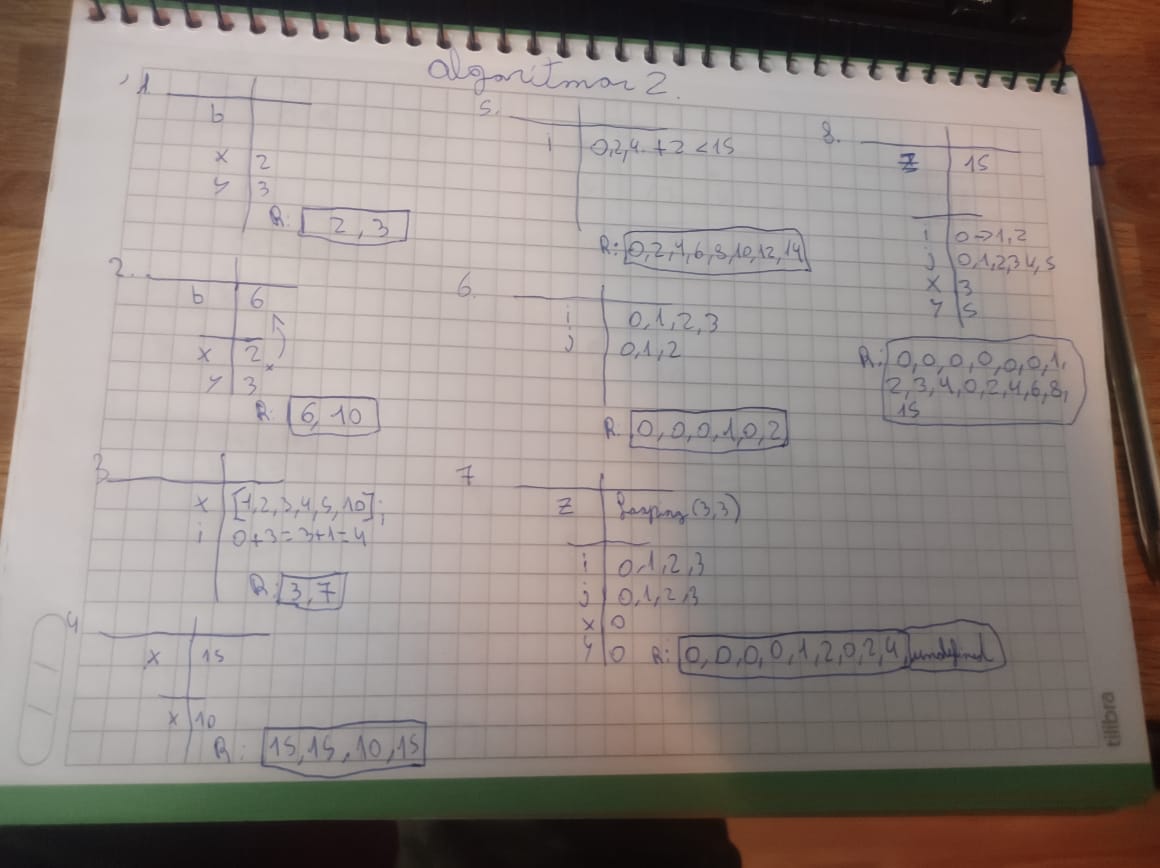 algoritmos 2.
1.
b
x 2
y 3
R: 2, 3
2.
b 6
x 2
y 3
R: 6, 10
3.
x [1,2,3,4,5,10];
i 0+3=3+1=4
R: 3, 7
4
x 15
x 10
R: 15, 15, 10, 15
5.
i 0,2,4. +2 <15
R: 0,2,4,6,8,10,12,14
6.
i 0,1,2,3
j 0,1,2
R. 0,0,0,1,0,2
7
z (3,3)
i 0,1,2,3
j 0,1,2,3
x 0
y 0
R: 0,0,0,0,1,2,0,2,4, undefined
8.
z 15
i 0→1,2
j 0,1,2,3 4,5
x 3
y 5
R: 0,0,0,0,0,0,1,
2,3,4,0,2,4,6,8,
15
tilibra